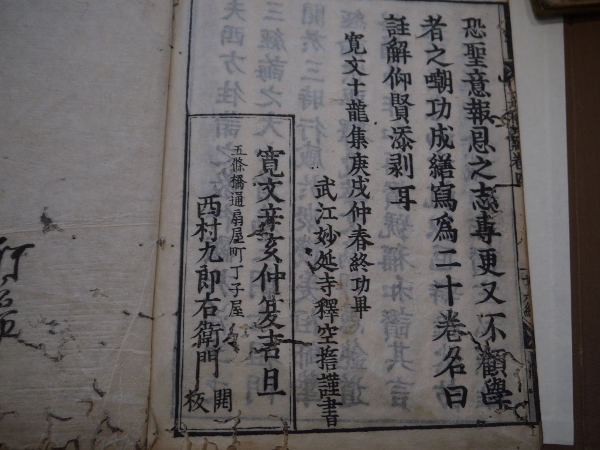 恐聖意報恩之志專更又不顧學
者之嘲功成繕寫爲二十卷名曰
註解仰賢添剥耳
寛文十龍集庚戌仲春終功畢
武江妙延寺釋空撎謹書
寛文辛亥仲夏吉旦
五條橋通扇屋町丁子屋
西村九郎右衛門
開板